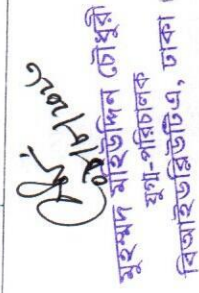 মুহম্মদ মাইউদ্দিন চৌধুরী
যুগ্ম-পরিচালক
বিআইডব্লিউটিএ, ঢাকা